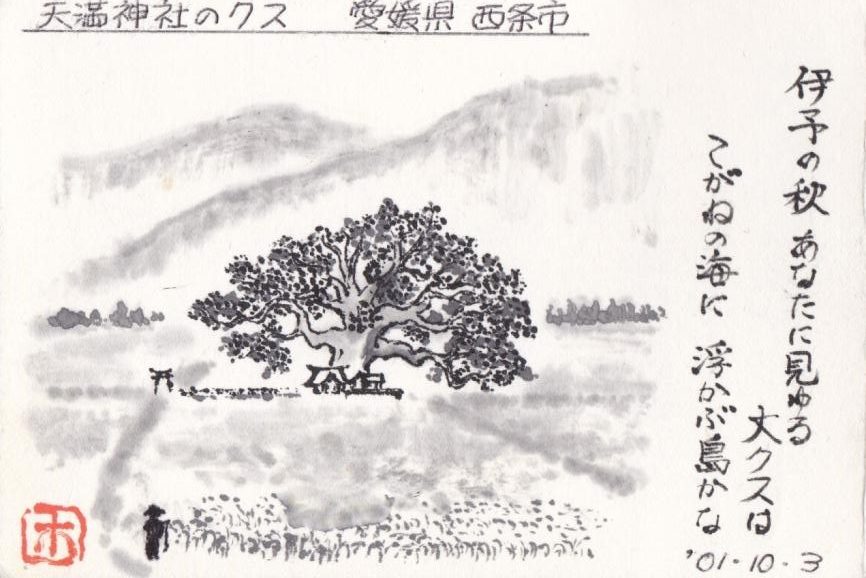 天満神社のクス　愛媛県 西条市
伊予の秋 あなたに見ゆる
大クスは
こがねの海に 浮かぶ島かな
'01.10.3